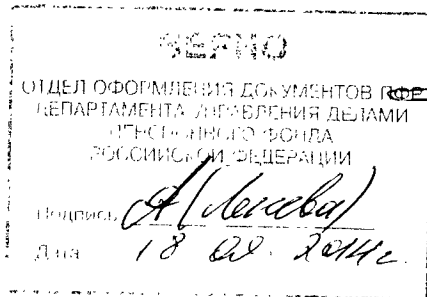 ВЕРНО
ОТДЕЛ ОФОРМЛЕНИЯ ДОКУМЕНТОВ ПФР
ДЕПАРТАМЕНТА УПРАВЛЕНИЯ ДЕЛАМИ
ПЕНСИОННОГО ФОНДА
РОССИЙСКОЙ ФЕДЕРАЦИИ
Подпись
Дата 18 02. 2014г.